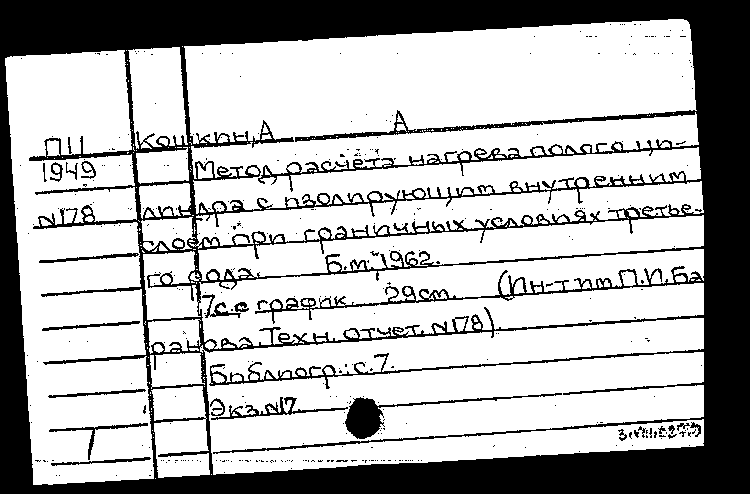 П11 Кошкин, А А
1949 Метод расчета нагрева полого ци-
N178 линдра с изолирующим внутренним
слоем при граничных условиях третье-
го рода. Б.м., 1962.
7с. с график. 29см. (Ин-т им. П.И. Ба
ранова. Техн. отчет, N178).
Библиогр.: с.7.
Экз. N17.
1